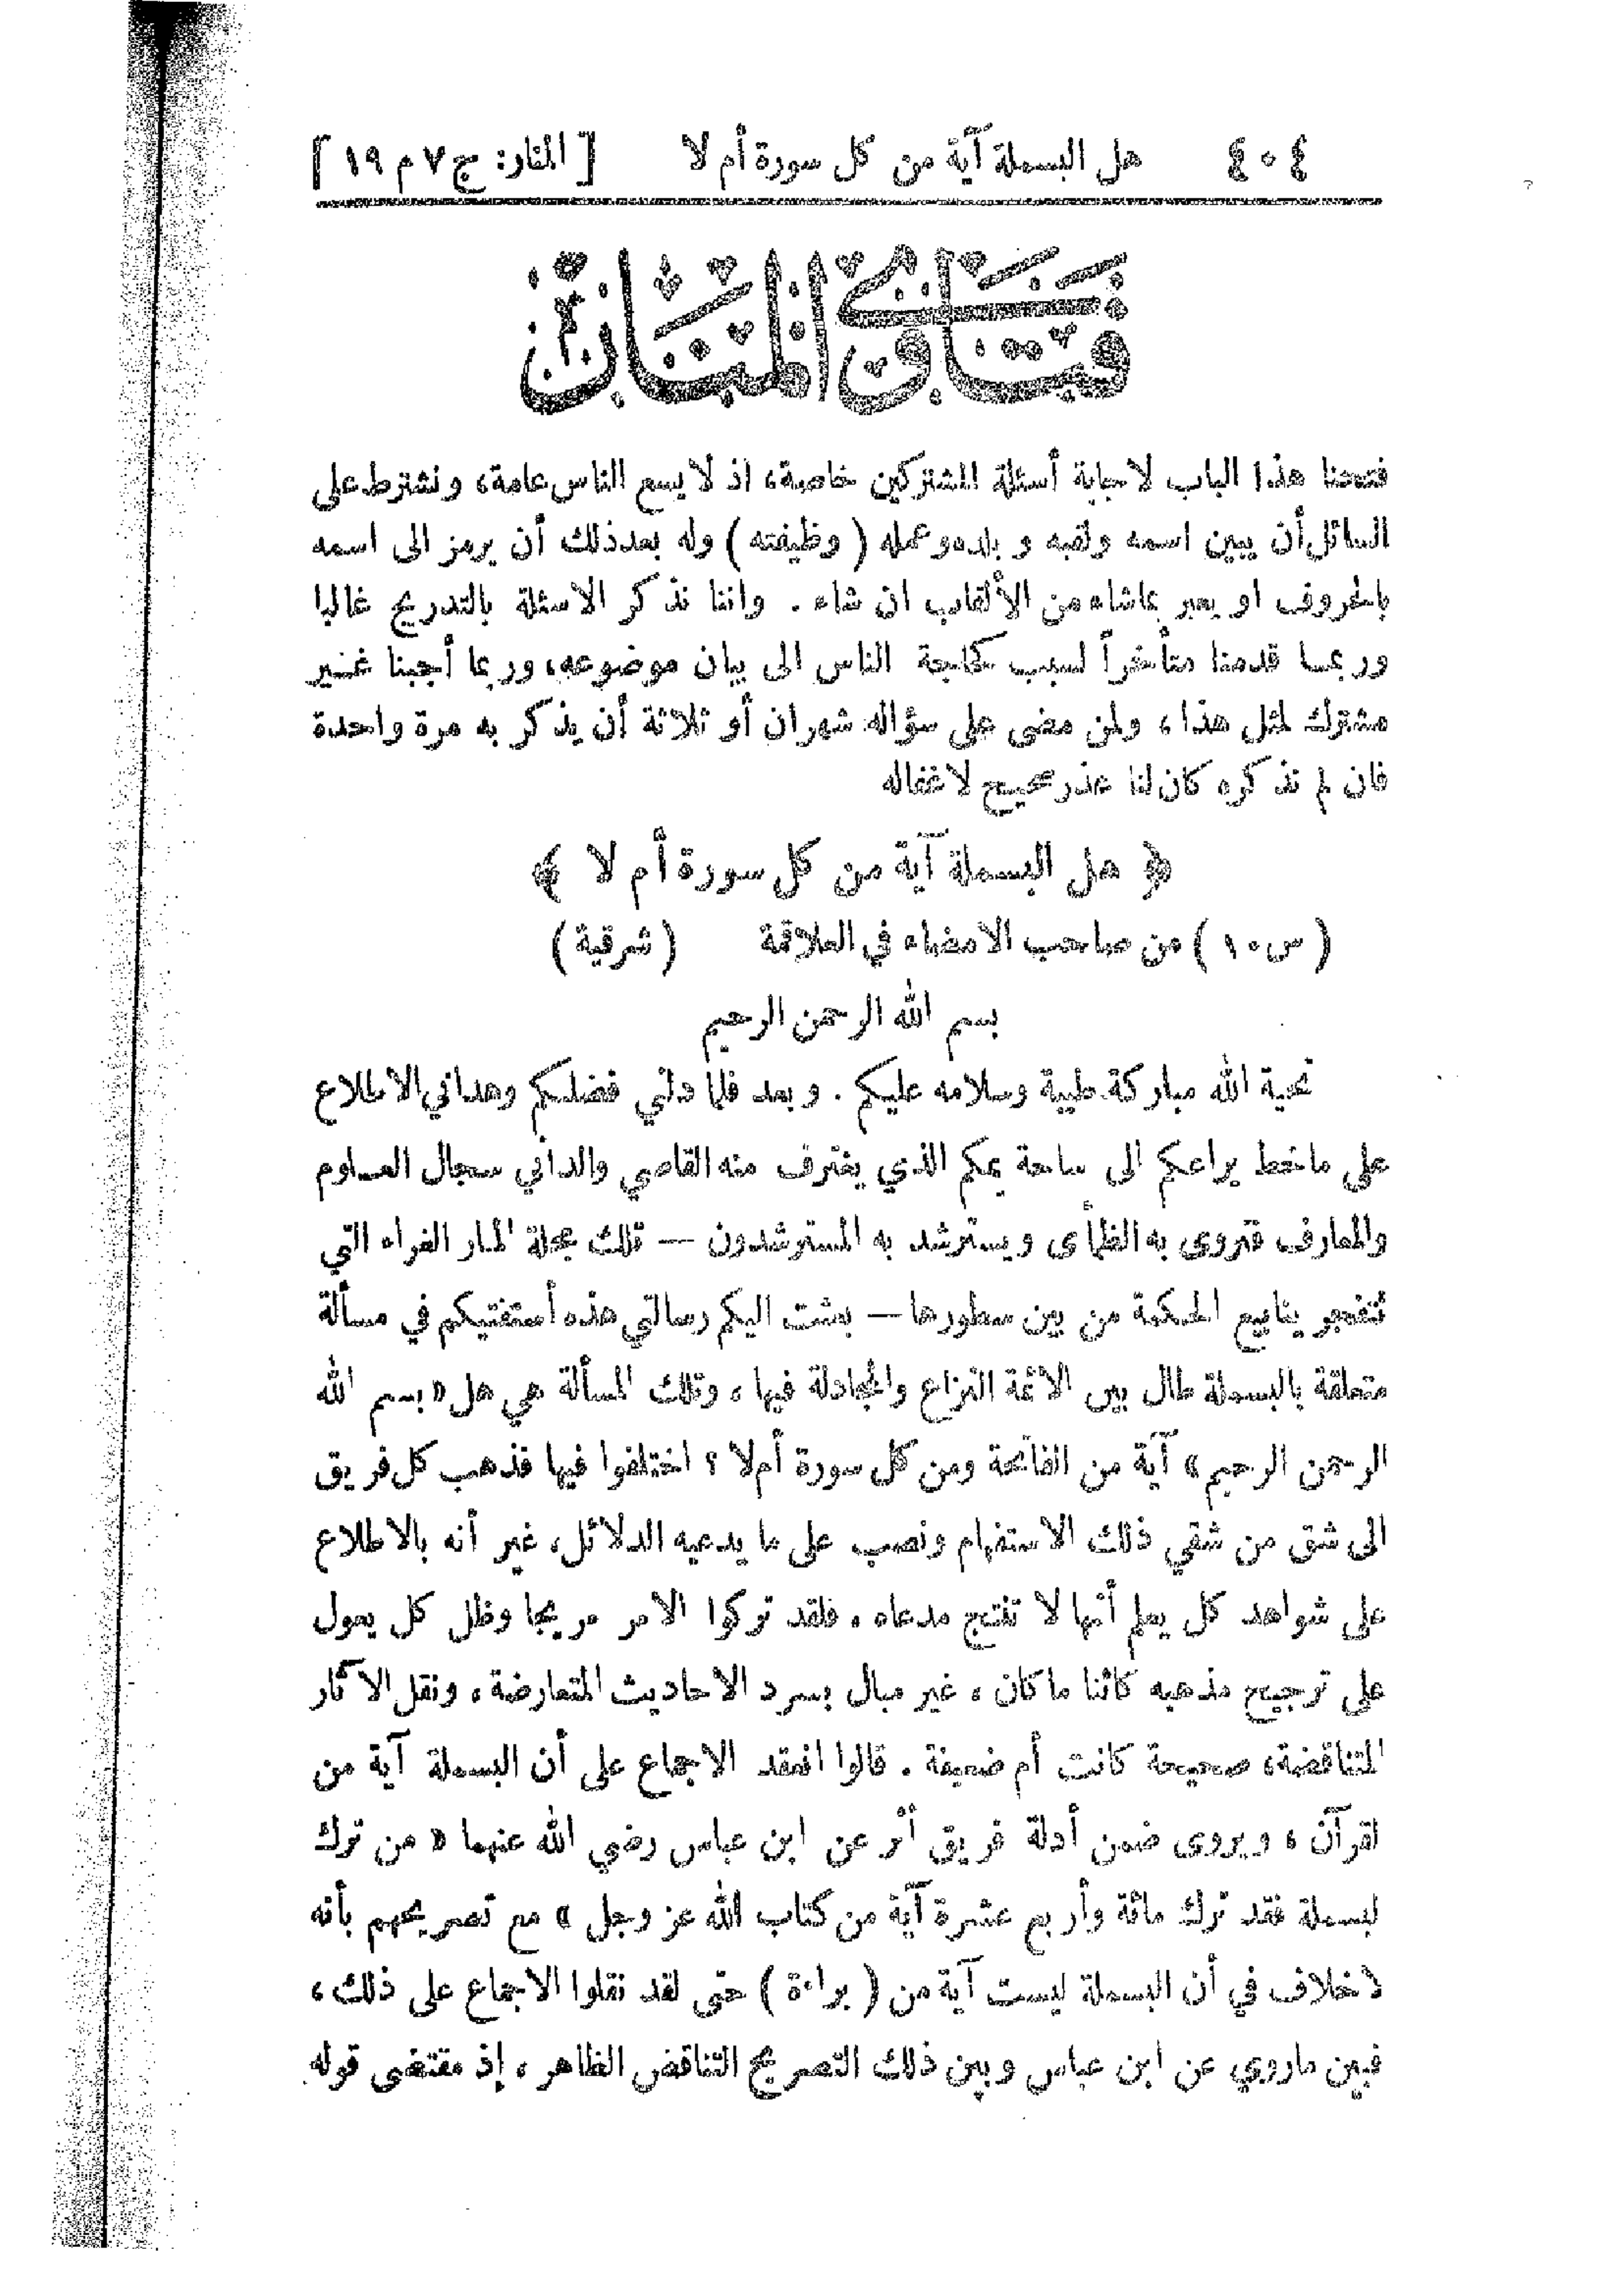 ٤٠٤ هل البسملة آية من كل سورة أم لا [ المنار: ج ٧ م ١٩ ]
فتاوى المنار
فتحنا هذا الباب لاجابة أسئلة المشتركين خاصة، اذ لا يسع الناس عامة، ونشترط على
السائل أن يبين اسمه ولقبه وبلده وعمله ( وظيفته ) وله بعد ذلك أن يرمز الى اسمه
بالحروف او يعبر بما شاء من الألقاب ان شاء . واننا نذكر الاسئلة بالتدريج غالبا
وربما قدمنا متأخراً لسبب كحاجة الناس الى بيان موضوعه، وربما أجبنا غير
مشترك لمثل هذا ، ولمن مضى على سؤاله شهران أو ثلاثة أن يذكر به مرة واحدة
فان لم نذكره كان لنا عذر صحيح لاغفاله
﴿ هل البسملة آية من كل سورة أم لا ﴾
( س١٠ ) من صاحب الامضاء في العلاقة ( شرقية )
بسم الله الرحمن الرحيم
تحية الله مباركة طيبة وسلامه عليكم . وبعد فلما دلني فضلكم وهداني الاطلاع
على ما خط يراعكم الى ساحة يمكم الذي يغترف منه القاصي والداني سجال العلوم
والمعارف فتروى به الظمأى ويسترشد به المسترشدون — تلك مجلة المنار الغراء التي
تتفجر ينابيع الحكمة من بين سطورها — بعثت اليكم رسالتي هذه أستفتيكم في مسألة
متعلقة بالبسملة طال بين الائمة النزاع والمجادلة فيها ، وتلك المسألة هي هل « بسم الله
الرحمن الرحيم » آية من الفاتحة ومن كل سورة أم لا ؟ اختلفوا فيها فذهب كل فريق
الى شق من شقي ذلك الاستفهام ونصب على ما يدعيه الدلائل، غير أنه بالاطلاع
على شواهد كل يعلم أنها لا تنتج مدعاه ، فلقد تركوا الامر مريجا وظل كل يعول
على ترجيح مذهبه كائنا ما كان ، غير مبال بسرد الاحاديث المتعارضة ، ونقل الآثار
المتناقضة، صحيحة كانت أم ضعيفة . قالوا انعقد الاجماع على أن البسملة آية من
لقرآن ، ويروى ضمن أدلة فريق أثر عن ابن عباس رضي الله عنهما « من ترك
لبسملة فقد ترك مائة وأربع عشرة آية من كتاب الله عز وجل » مع تصريحهم بأنه
لا خلاف في أن البسملة ليست آية من ( براءة ) حتى لقد نقلوا الاجماع على ذلك ،
فبين ما روي عن ابن عباس وبين ذلك التصريح التناقض الظاهر ، إذ مقتضى قوله